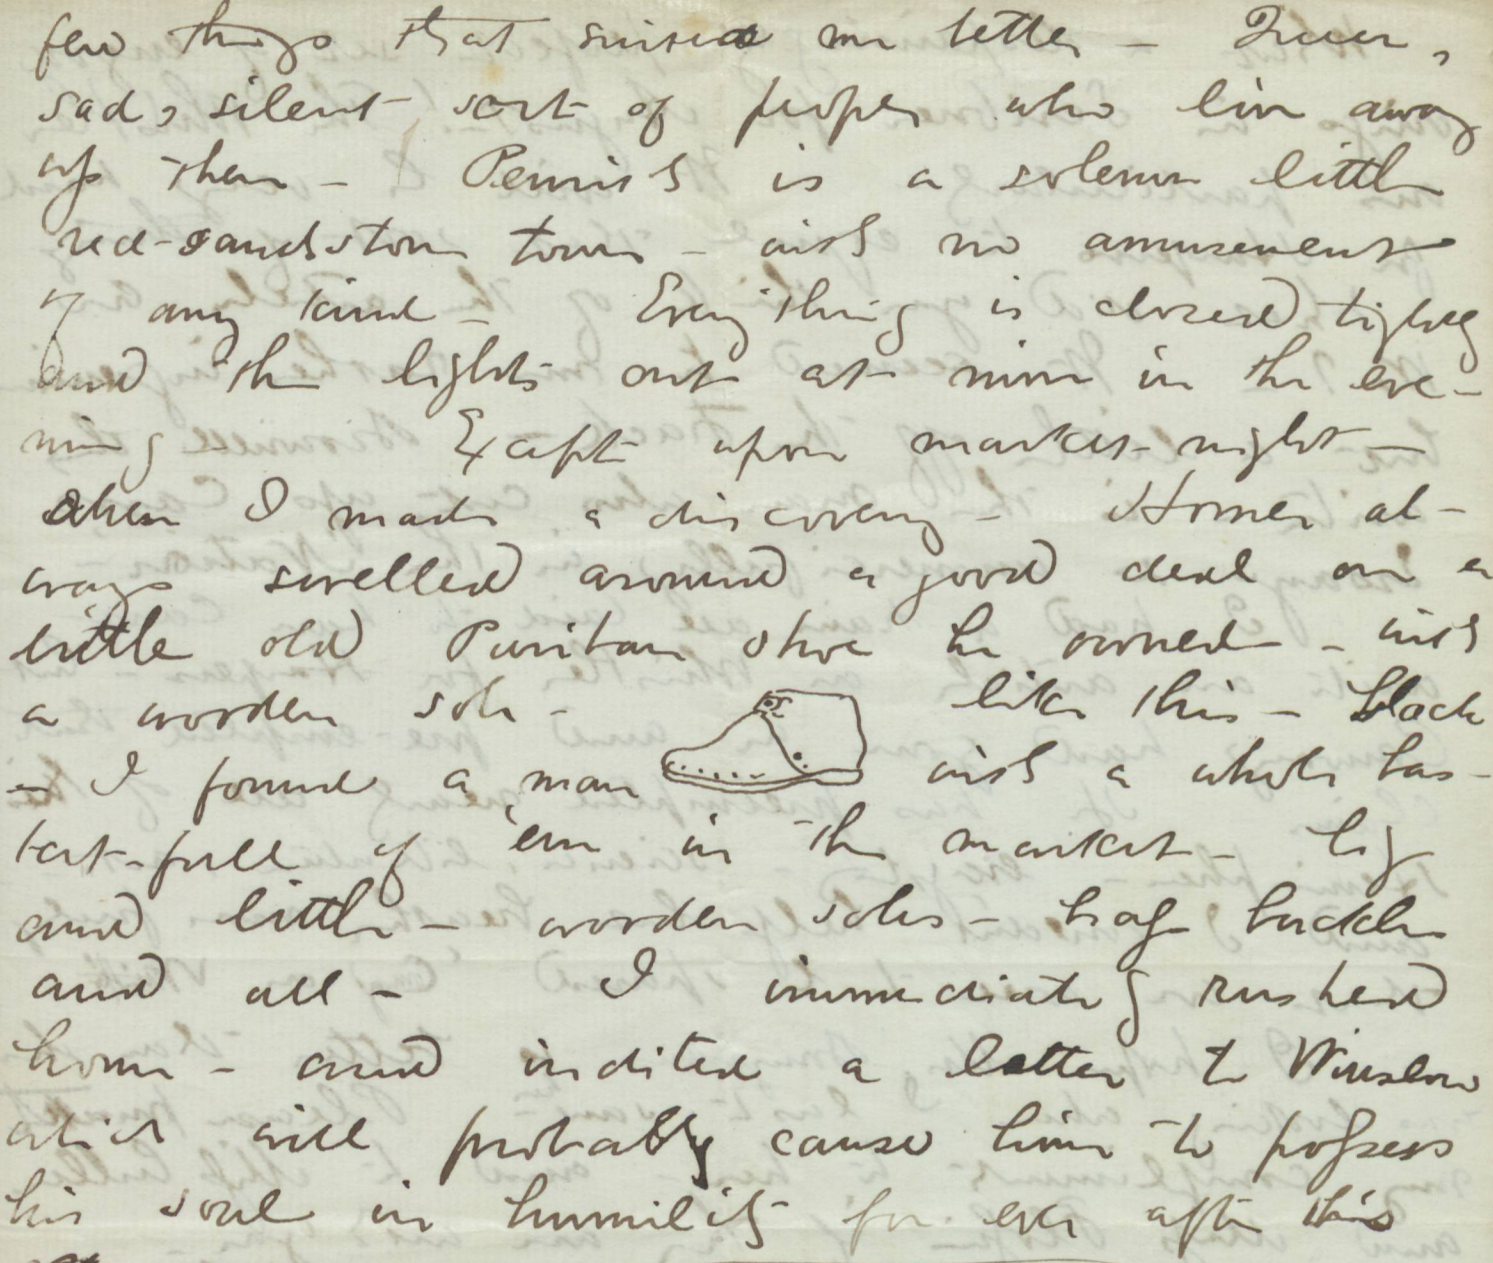 few things that suited me better – Queer,
sad, silent sort of people who live away
up there – Penrith is a solemn little
red-sandstone town – with no amusement
of any kind – Everything is closed tightly
and the lights out at nine in the eve-
ning Except upon market-night –
when I made a discovery – Homer al-
ways swelled around a good deal on a
little old Puritan shoe he owned – with
a wooden sole – like this – black
– I found a man with a whole bas-
ket-full of 'em in the market – big
and little – wooden soles – brass buckle
and all – I immediately rushed
home – and indited a letter to Winslow
which will probably cause him to possess
his soul in humility for ever after this